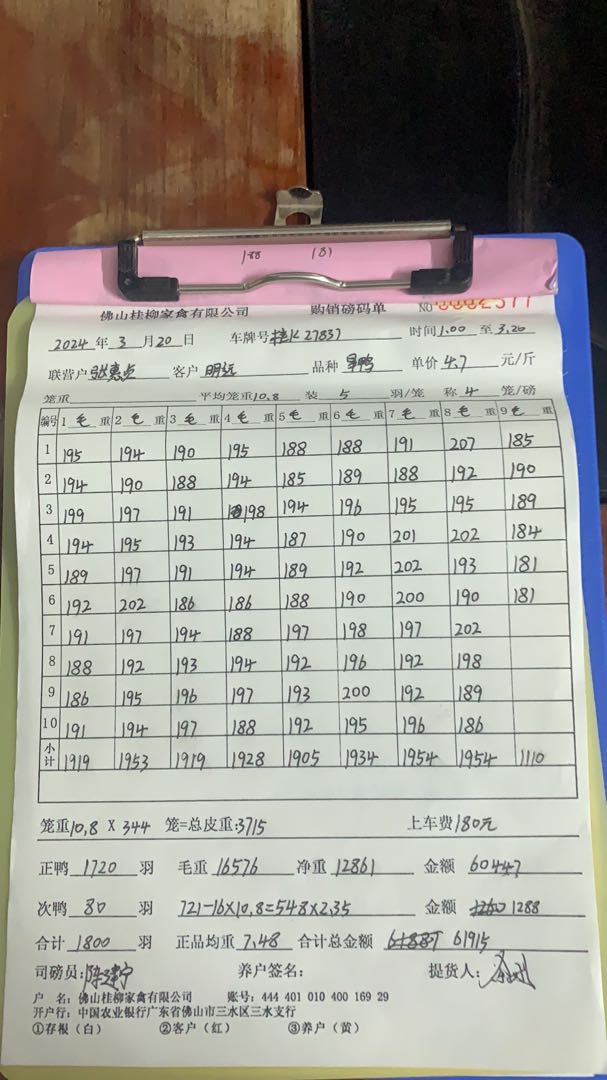 188 181
佛山桂柳家禽有限公司 购销磅码单 NO
2024年3月20日 车牌号 27837 时间1.00至3.20
联营户 客户 明远 品种 单价4.7元/斤
笼重 平均笼重10.8 装5羽/笼 称4笼/磅
编号 1毛重 2毛重 3毛重 4毛重 5毛重 6毛重 7毛重 8毛重 9毛重
1 195 194 190 195 188 188 191 207 185
2 194 190 188 194 185 189 188 192 190
3 199 197 191 198 194 196 195 195 189
4 194 195 193 194 187 190 201 202 184
5 189 197 191 194 189 192 202 193 181
6 192 202 186 186 188 190 200 190 181
7 191 197 194 188 197 198 197 202
8 188 192 193 194 192 196 192 198
9 186 195 196 197 193 200 192 189
10 191 194 197 188 192 195 196 186
小计 1919 1953 1919 1928 1905 1934 1954 1954 1110
笼重10.8X344笼=总皮重:3715 上车费180元
正鸭1720羽 毛重16576 净重12861 金额60447
次鸭80羽 721-16X10.8=548X2.35 金额 1288
合计1800羽 正品均重7.48 合计总金额 61915
司磅员: 养户签名: 提货人:
户 名:佛山桂柳家禽有限公司 账号:444 401 010 400 169 29
开户行:中国农业银行广东省佛山市三水区三水支行
①存根(白) ②客户(红) ③养户(黄)